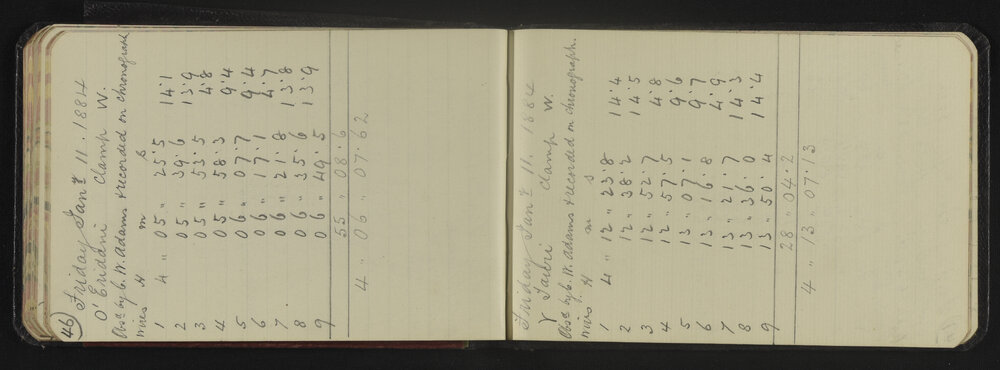 46
Friday Jany 11. 1884
O' Eridani Clamp W.
Obsd by C. W. Adams & recorded on chronograph
wires H m s
1 4 " 05 " 25.5 14.1
2 05 " 39.6 13.9
3 05 " 53.5 4.8
4 05 " 58.3 9.4
5 06 " 07.7 9.4
6 06 " 17.1 4.7
7 06 " 21.8 13.8
8 06 " 35.6 13.9
9 06 " 49.5
55 " 08.6
4 " 06 " 07.62
Friday Jany 11. 1884
γ Tauri Clamp W.
Obsd by C. W. Adams & recorded on chronograph.
wires H m s
1 4 " 12 " 23.8 14.4
2 12 " 38.2 14.5
3 12 " 52.7 4.8
4 12 " 57.5 9.6
5 13 " 07.1 9.7
6 13 " 16.8 4.9
7 13 " 21.7 14.3
8 13 " 36.0 14.4
9 13 " 50.4
28 " 04.2
4 " 13 " 07.13